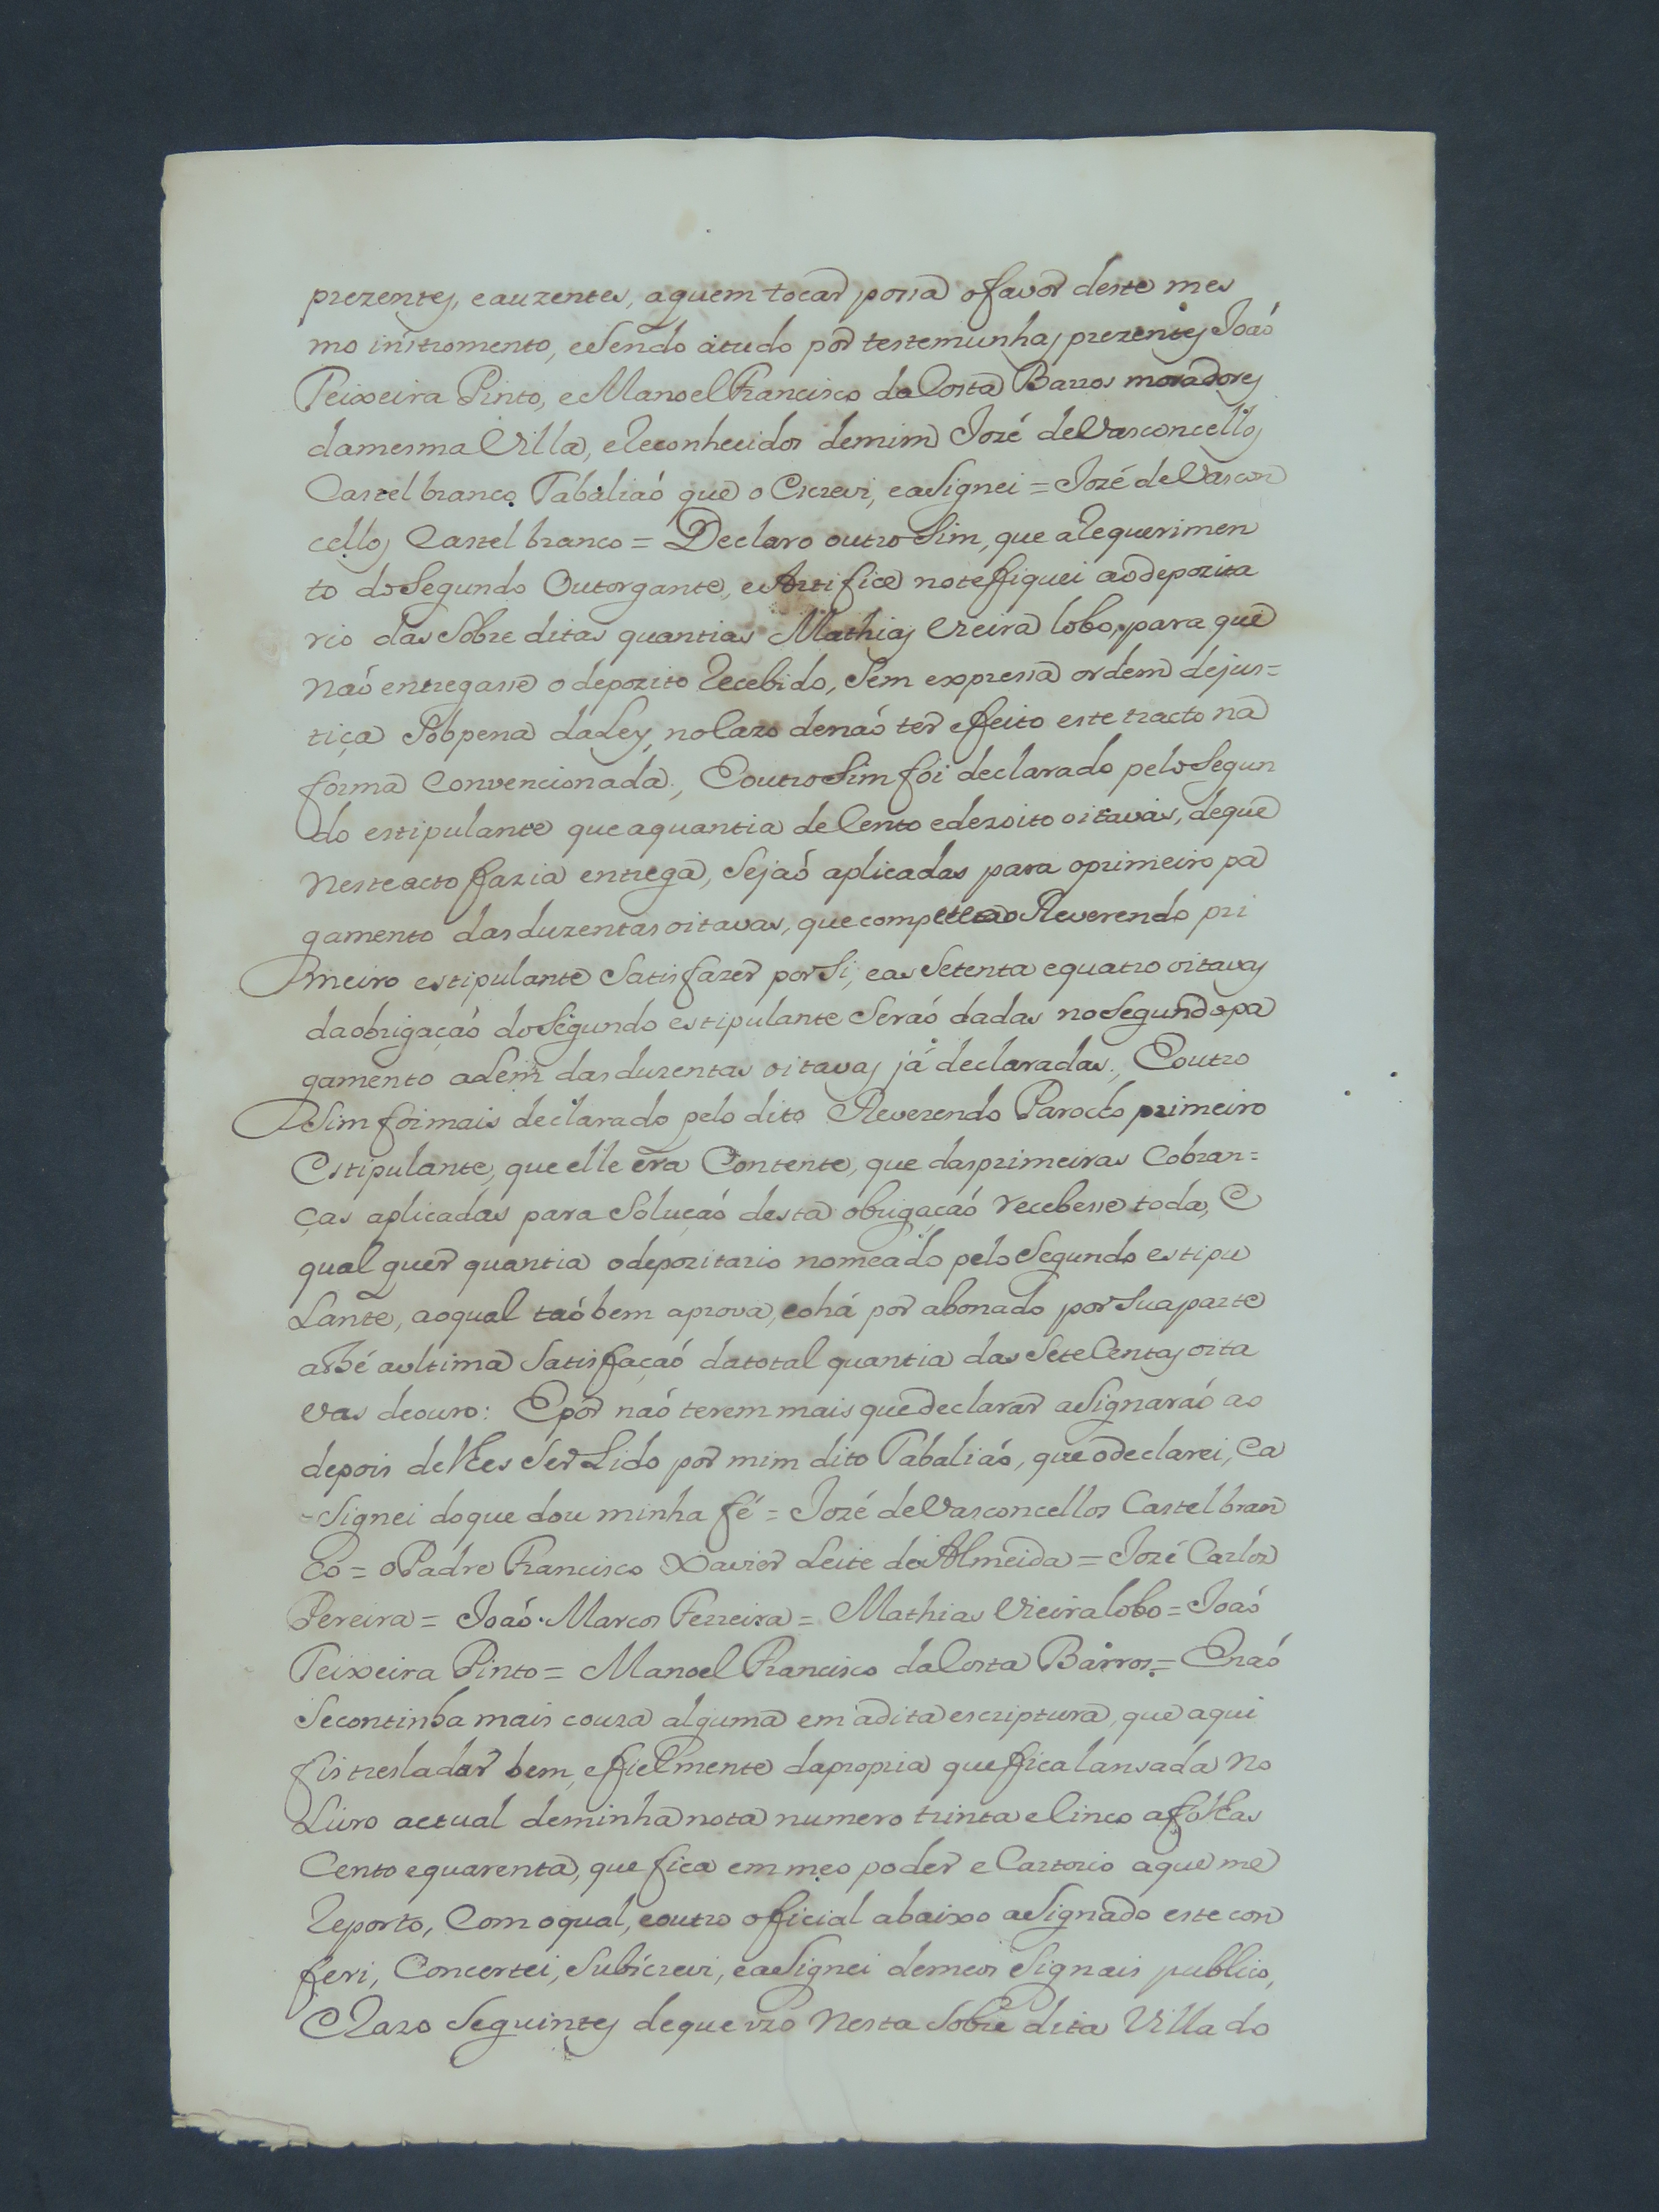 prezentes, e auzentes, a quem tocar possa o favor deste mes
mo instromento, e sendo a tudo por testemunhas prezentes Joaó
Teixeira Pinto, e Manoel Francisco da Costa Barros moradores
da mesma Villa, e Reconhecidos de mim Jozé de Vasconcellos
Castel branco Tabaliaó que o Escrevi, e asignei = Jozé de Vascon
cellos Castel branco = Declaro outro Sim, que a Requerimen
to do Segundo Outorgante, e Artifice notefiquei ao depozita
rio das Sobre ditas quantias Mathias Vieira lobo, para que
naó entregasse o depozito Recebido, Sem expressa ordem de jus=
tiça Sob pena da Ley, no Cazo de naó ter effeito este tracto na
forma Convencionada., E outro Sim foi declarado pelo Segun
do estipulante que a quantia de Cento e dezoito oitavas, de que
neste acto fazia entrega, Sejaó aplicadas para o primeiro pa
gamento das duzentas oitavas, que compete ao Reverendo pri
meiro estipulante Satisfazer por Si, e as Setenta e quatro oitavas
da obrigaçaó do Segundo estipulante Seraó dadas no Segundo pa
gamento alem das duzentas oitavas já declaradas., E outro
Sim foi mais declarado pelo dito Reverendo Parocho primeiro
Estipulante, que elle era Contente, que das primeiras Cobran=
ças aplicadas para Soluçaó desta obrigaçaó recebesse toda, E
qual quer quantia o depozitario nomeado pelo Segundo estipu
Lante, ao qual taóbem aprova, e o há por abonado por Sua parte
athé a ultima Satisfaçaó da total quantia das Sete Centas oita
vas de ouro: E por naó terem mais que declarar asignaraó ao
depois de lhes Ser Lido por mim dito Tabaliaó, que o declarei, Ea
Signei do que dou minha fé = Jozé de Vasconcellos Castel bran
Co = o Padre Francisco Xavier Leite de Almeida = Jozé Carlos
Pereira = Joaó Marcos Ferreira = Mathias Vieira lobo = Joaó
Teixeira Pinto = Manoel Francisco da Costa Barros = E naó
Se continha mais couza alguma em a dita escriptura, que aqui
fis tresladar bem, e fielmente da propria que fica lansada no
Livro actual de minha nota numero trinta e Cinco a folhas
Cento e quarenta, que fica em meo poder e Cartorio a que me
Reporto, Com o qual, e outro official abaixo asignado este con
feri, Concertei, Subscrevi, e asignei de meos Signais publico,
E Razo Seguintes de que uzo Nesta Sobre dita Villa do